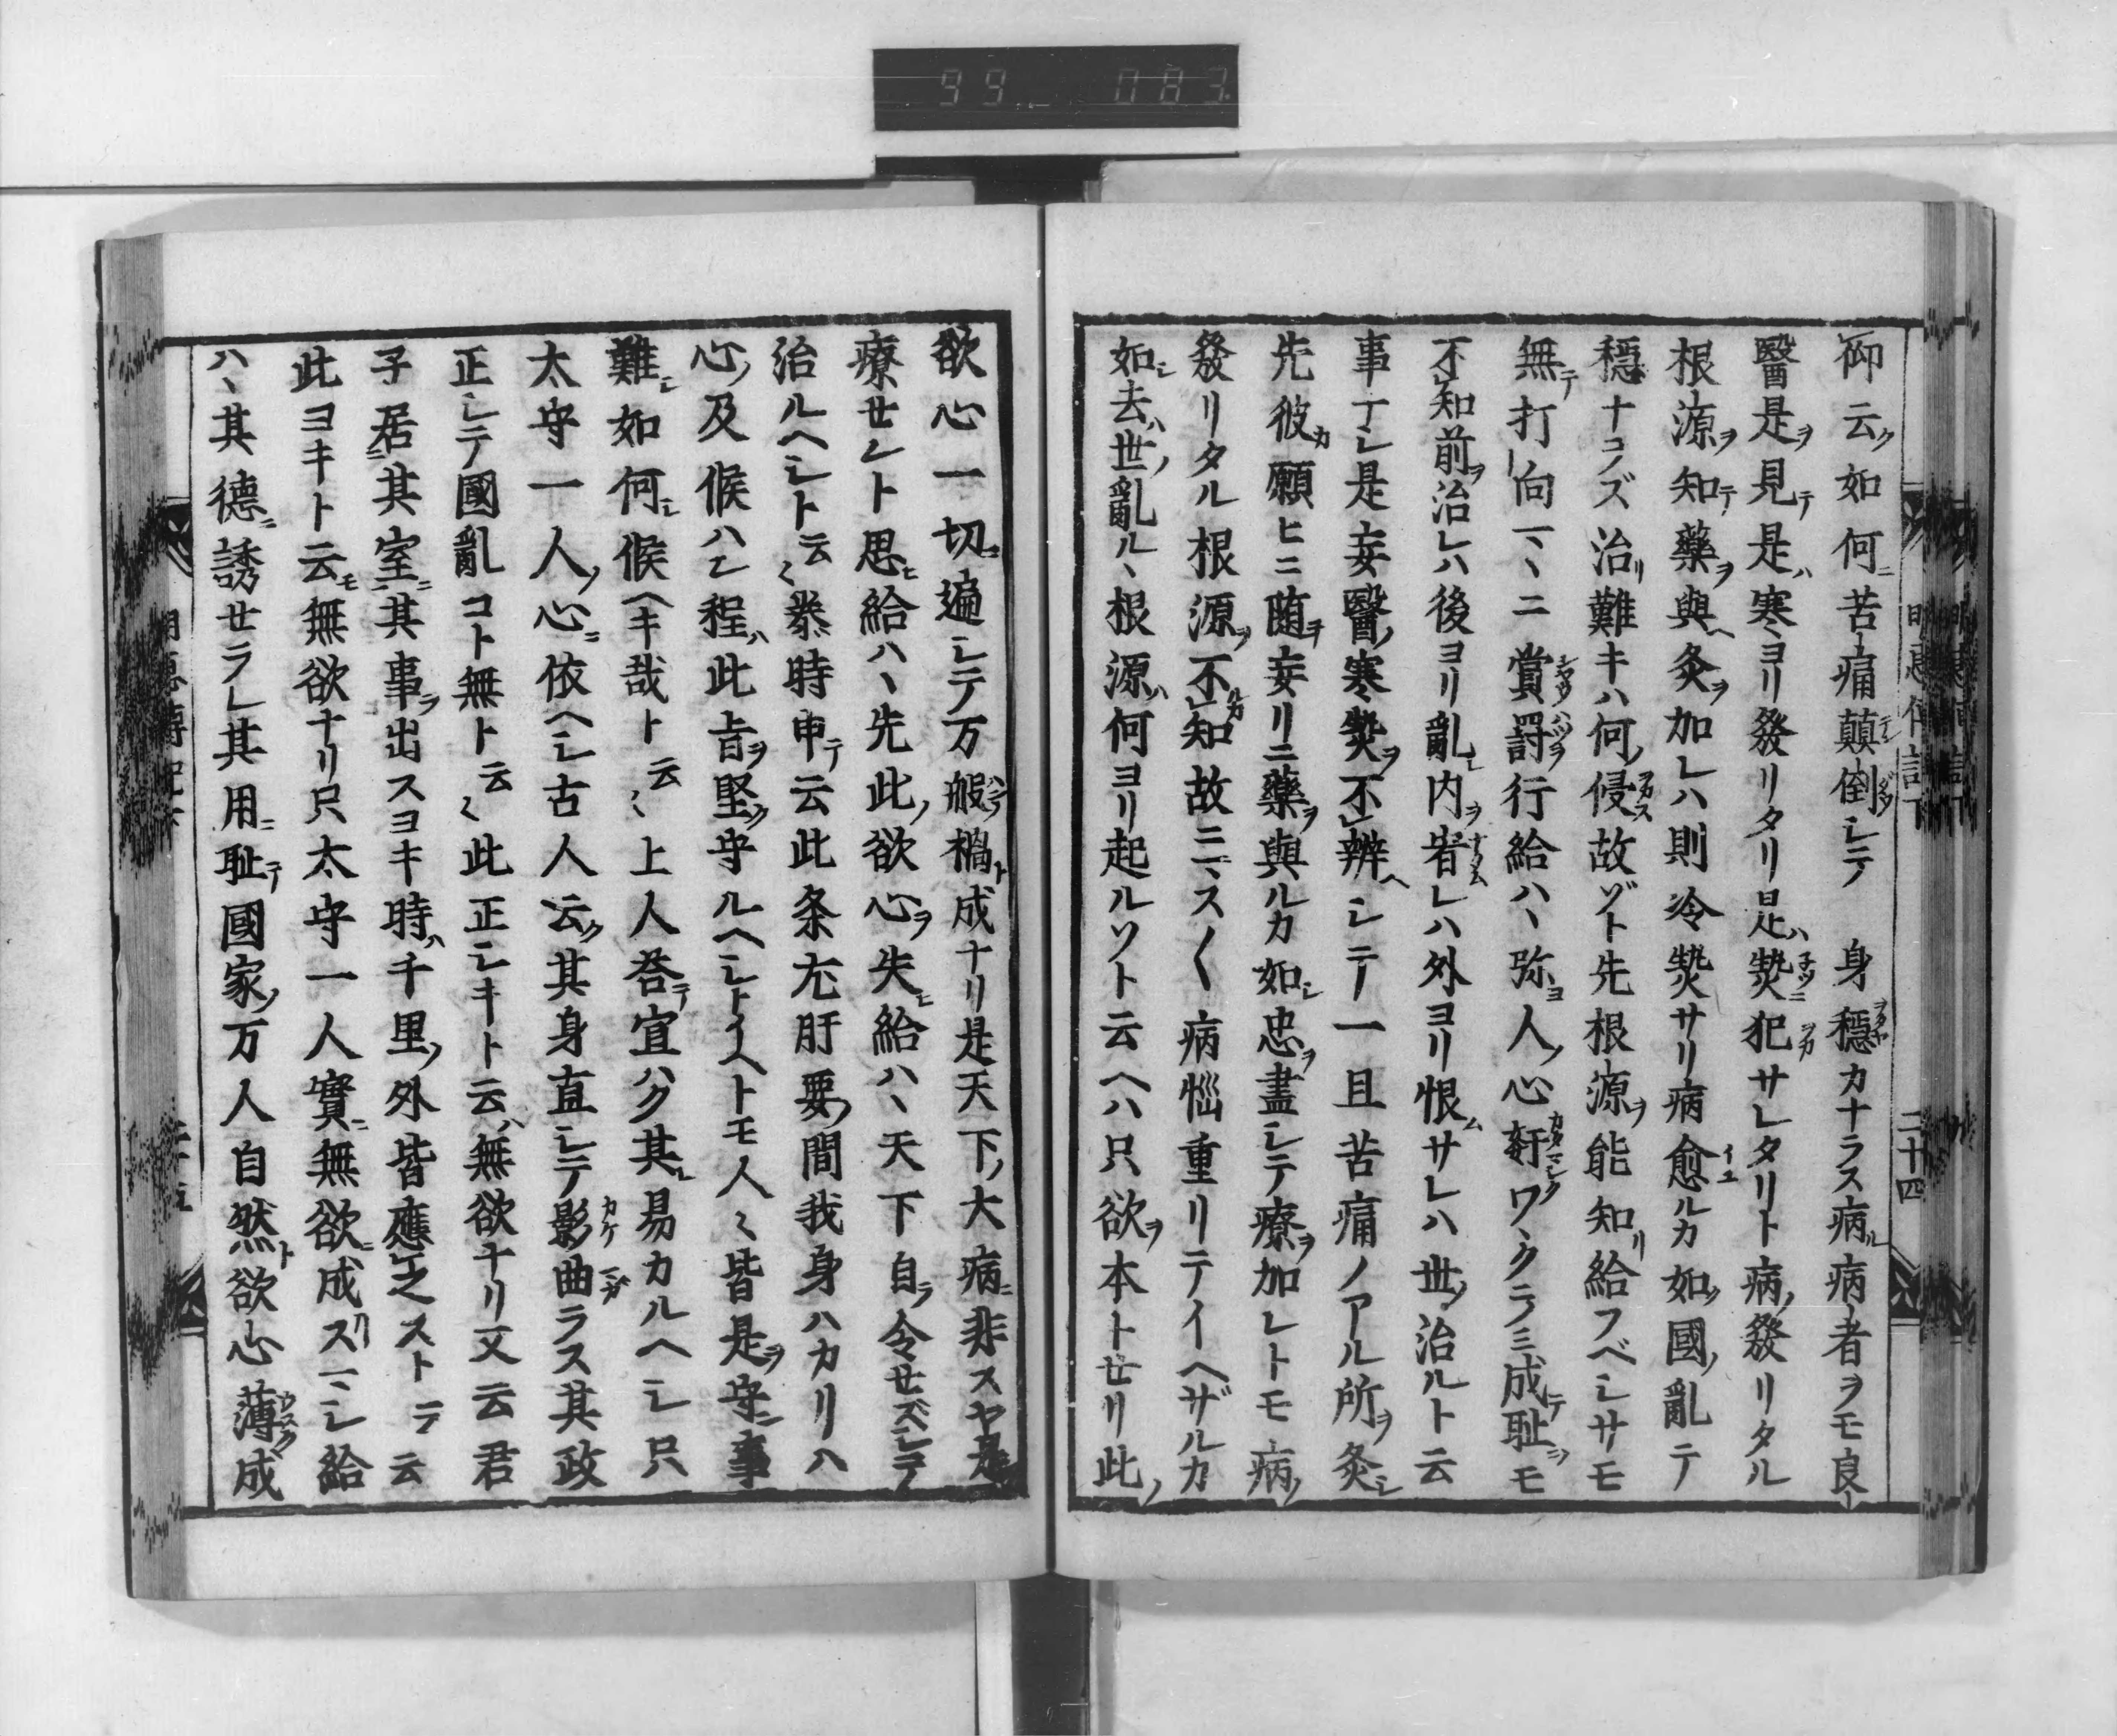 99 083
仰云ク如何ニ苦痛顛倒シテ身穏カナラス病ル病者ヲモ良
醫是ヲ見テ是ハ寒ヨリ發リタリ是ハ𤍠ニ犯サレタリト病ノ發リタル
根源ヲ知テ藥ヲ與ヘ灸ヲ加レハ則冷𤍠サリ病愈ルカ如ク國ノ亂テ
穏ナラズ治リ難キハ何ノ侵故ゾト先根源ヲ能知リ給フベシサモ
無テ打向一、ニ賞罸ヲ行給ハ、弥人ノ心姧クワ、クニノミ成テ耻ヲモ
不知前ヲ治レハ後ヨリ亂レ内ヲ宥レハ外ヨリ恨ムサレハ世ノ治ルト云
事ナシ是妄醫ノ寒𤍠ヲ不辨ヘシテ一旦苦痛ノアル所ヲ灸シ
先彼カ願ヒニ随ヲ妄リニ藥ヲ與ルカ如シ忠ヲ盡シテ療ヲ加レトモ病ノ
發リタル根源ヲ不知ルカ故ニ、ス〱病惱重リテイヘザルカ
如シ去ハ世ノ亂ル、根源ハ何ヨリ起ルソト云ヘハ只欲ヲ本トセリ此ノ
欲心一切ニ遍シテ万般ノ禍ト成ナリ是天下ノ大病ニ非スヤ是
療セント思ヒ給ハ、先此ノ欲心ヲ失ヒ給ハ、天下自ラ令セズシテ
治ルヘシト云〻泰時申テ云此条尤肝要ノ間我身ハカリハ
心ノ及候ハン程ハ此旨ヲ堅ク守ルヘシトイヘトモ人〻皆是ヲ守ン事
難シ如何シ候ヘキ哉ト云〻上人答テ宣ハク其レ易カルヘシ只
太守一人ノ心ニ依ヘシ古人云ク其身直シテ影曲ラス其政
正シテ國亂コト無ト云〻此正シキト云ハ無欲ナリ又云君
子居其室ニ其事ヲ出スヨキ時ハ千里ノ外皆應之ストラ云
此ヨキト云モ無欲ナリ只太守一人實ニ無欲ニ成スマシ給
ハ、其德ニ誘セラレ其用ニ耻テ國家ノ万人自然ト欲心薄ク成
二十四